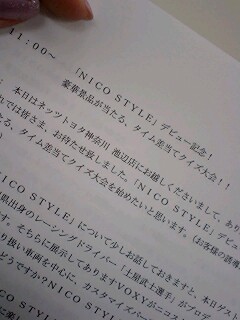 11:00～
「NICO STYLE」デビュー記念！
豪華景品が当たる、タイム差当てクイズ大会！！
本日はネッツトヨタ神奈川 池辺店にお越しくださいまして、あり
れでは皆さま、お待たせ致しました。「NICO STYLE」デビュ
たる、タイム差当てクイズ大会を始めたいと思います。（お客様の誘導
NICO STYLE」について少しお話しておきますと、本日ゲスト
県出身のレーシングドライバー「土屋武士選手」がプロデ
す。そちらに展示してありますVOXYがニコス
り扱い車両を中心に、カスタマイズパー
どうですか？NICO STYLE